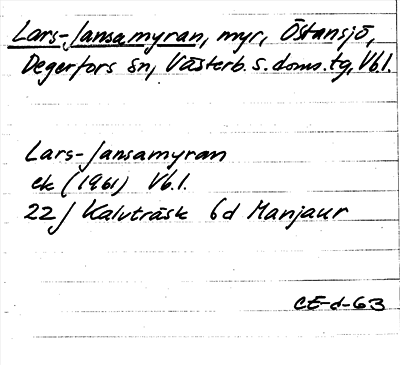 Lars-Jansamyran, myr, Östansjö,
Degerfors sn, Västerb. s. doms.tg, Vb.l.
Lars-Jansamyran
ek (1961) Vb.l.
22 J Kalvträsk 6d Manjaur
CE-d-63